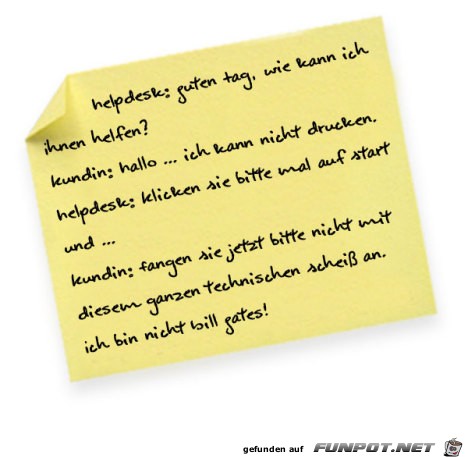 helpdesk: guten tag, wie kann ich
ihnen helfen?
kundin: hallo ... ich kann nicht drucken.
helpdesk: klicken sie bitte mal auf start
und ...
kundin: fangen sie jetzt bitte nicht mit
diesem ganzen technischen scheiß an.
ich bin nicht bill gates!
gefunden auf FUNPOT.NET